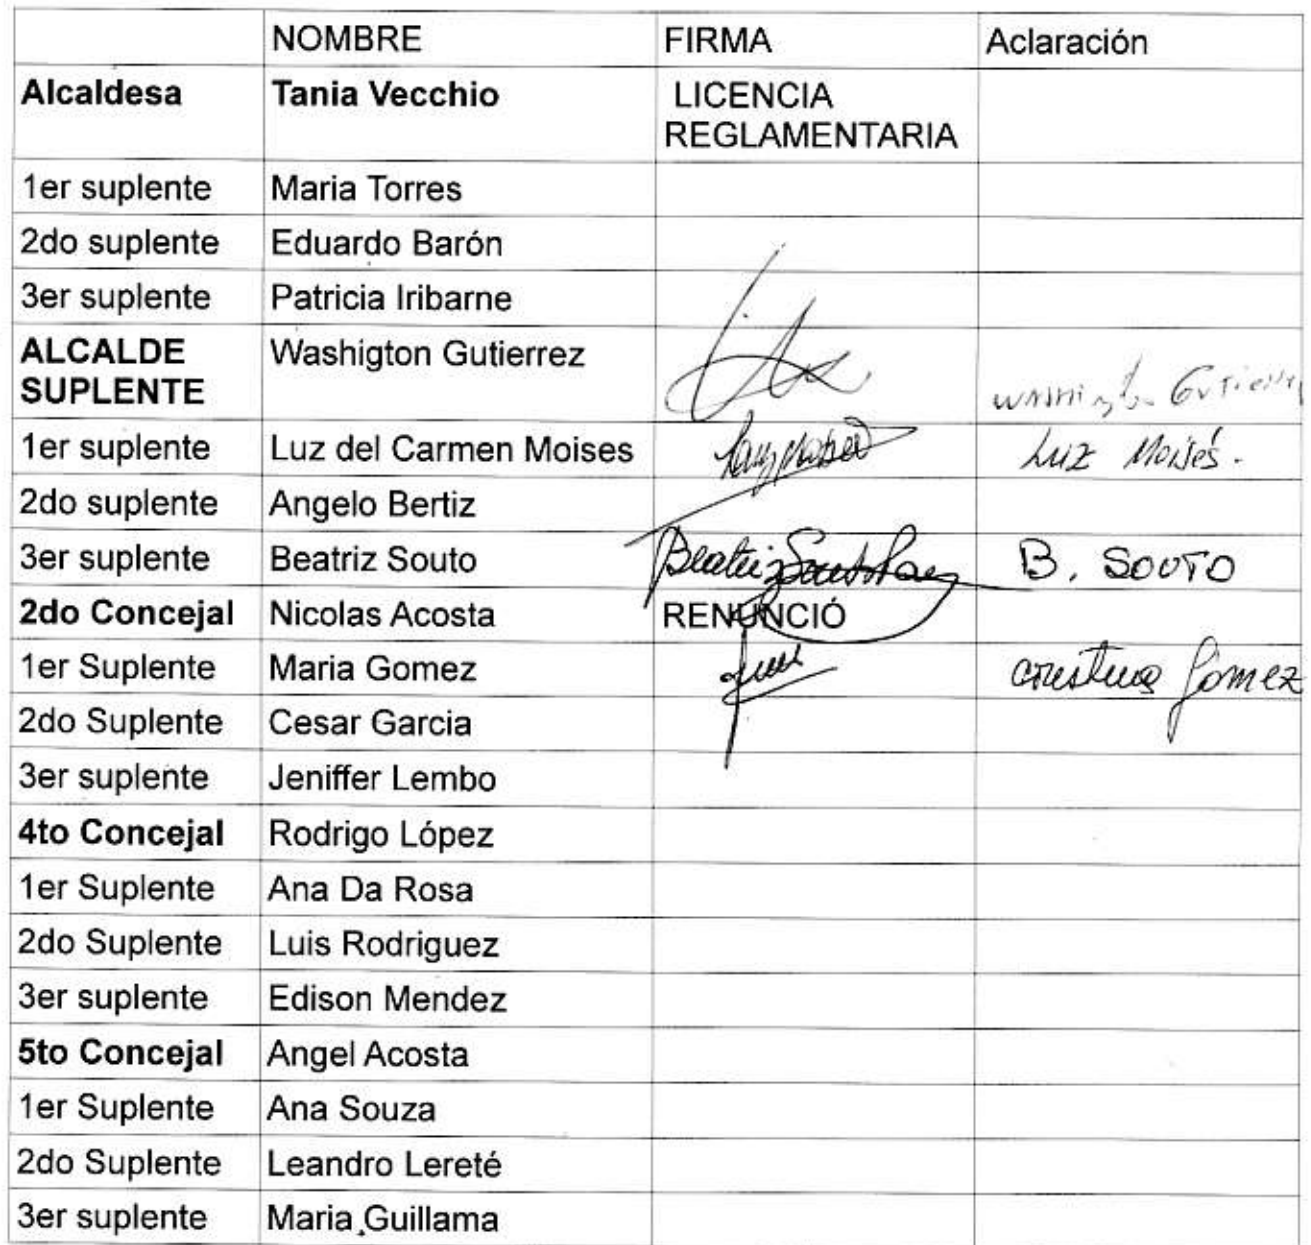 NOMBRE FIRMA Aclaración
Alcaldesa Tania Vecchio LICENCIA
REGLAMENTARIA
1er suplente Maria Torres
2do suplente Eduardo Barón
3er suplente Patricia Iribarne
ALCALDE Washigton Gutierrez
SUPLENTE
Washington Gutierrez
1er suplente Luz del Carmen Moises Luz Moisés.
2do suplente Angelo Bertiz
3er suplente Beatriz Souto Beatriz Souto B. SOUTO
2do Concejal Nicolas Acosta RENUNCIÓ
1er Suplente Maria Gomez Cristina Gomez
2do Suplente Cesar Garcia
3er suplente Jeniffer Lembo
4to Concejal Rodrigo López
1er Suplente Ana Da Rosa
2do Suplente Luis Rodriguez
3er suplente Edison Mendez
5to Concejal Angel Acosta
1er Suplente Ana Souza
2do Suplente Leandro Lereté
3er suplente Maria Guillama